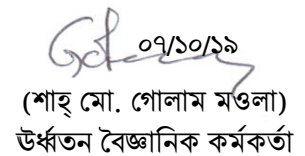 ০৭/১০/১৯
(শাহ্ মো. গোলাম মওলা)
ঊর্ধ্বতন বৈজ্ঞানিক কর্মকর্তা